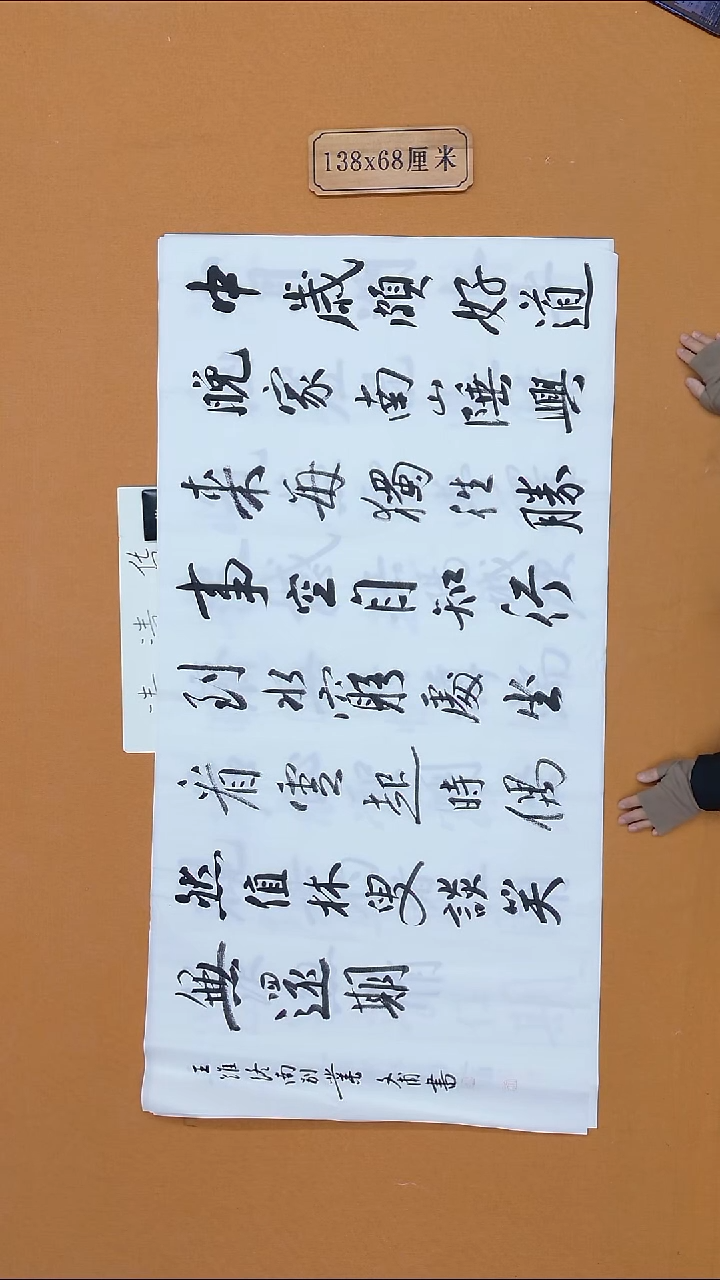 138x68厘米
中歲頗好道
晚家南山陲興
來每獨往勝
事空自知行
到水窮處坐
看雲起時偶
然值林叟談笑
無還期
王維終南別業 文甫書